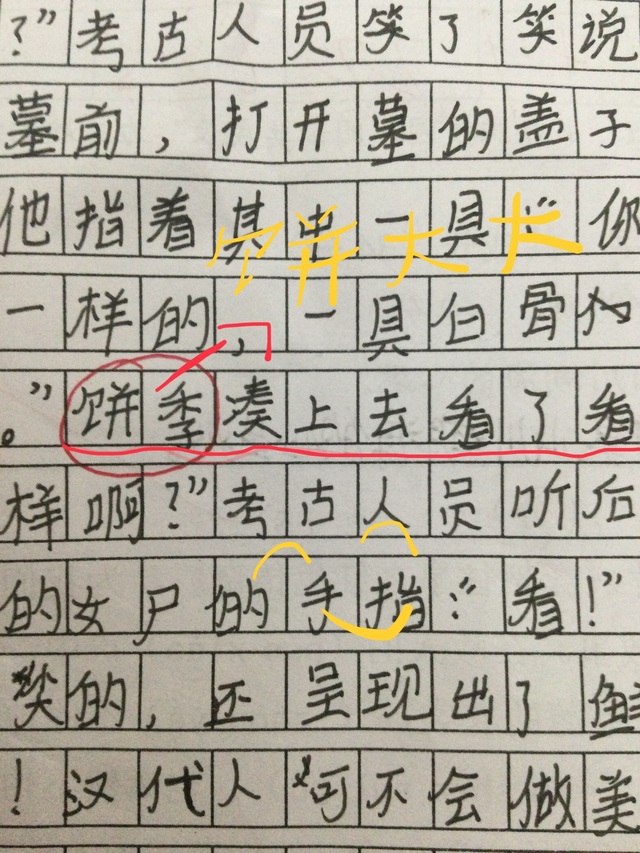 ？”考古人员笑了笑说
墓前，打开墓的盖子
他指着其中一具：“你
饼大大
一样的，一具白骨
。”饼季凑上去看了看
样啊？”考古人员听后
的女尸的手指：“看！”
笑的，还呈现出了鱼
！汉代人可不会做美